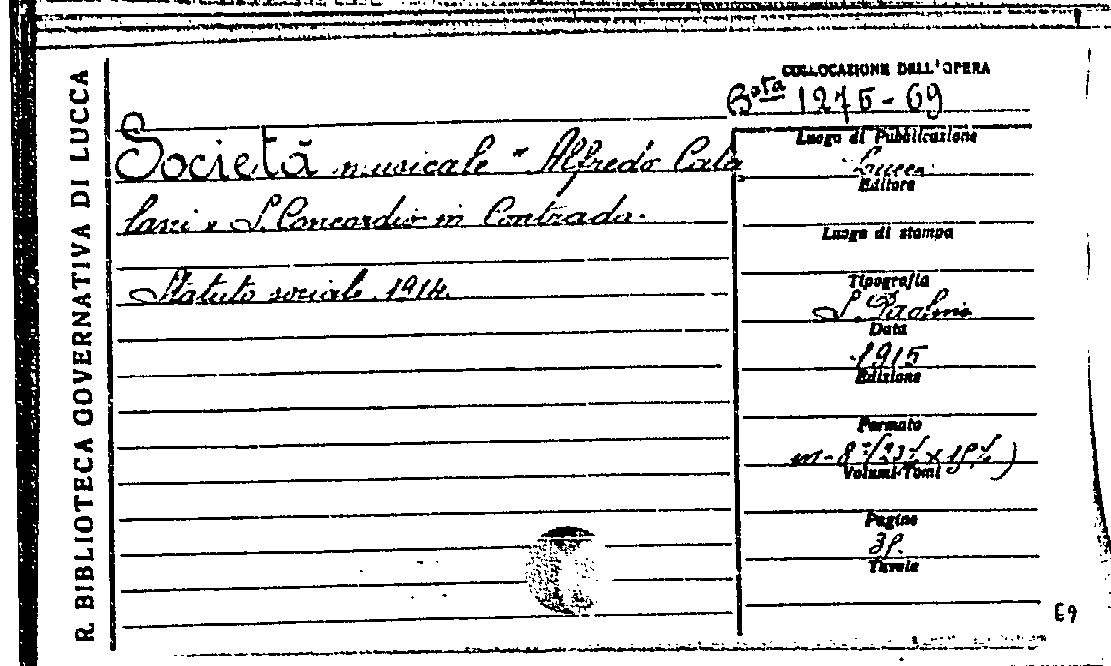 R. BIBLIOTECA GOVERNATIVA DI LUCCA
COLLOCAZIONE DELL'OPERA
Bsta 1275-69
Società musicale "Alfredo Cata
lani" S. Concordio in Contrada.
Statuto sociale 1914.
Luogo di Pubblicazione
Lucca
Editore
Luogo di stampa
Tipografia
S. Paolino
Data
1915
Edizione
Formato
in-8°
Volumi-Tomi
Pagine
Tavole
E9